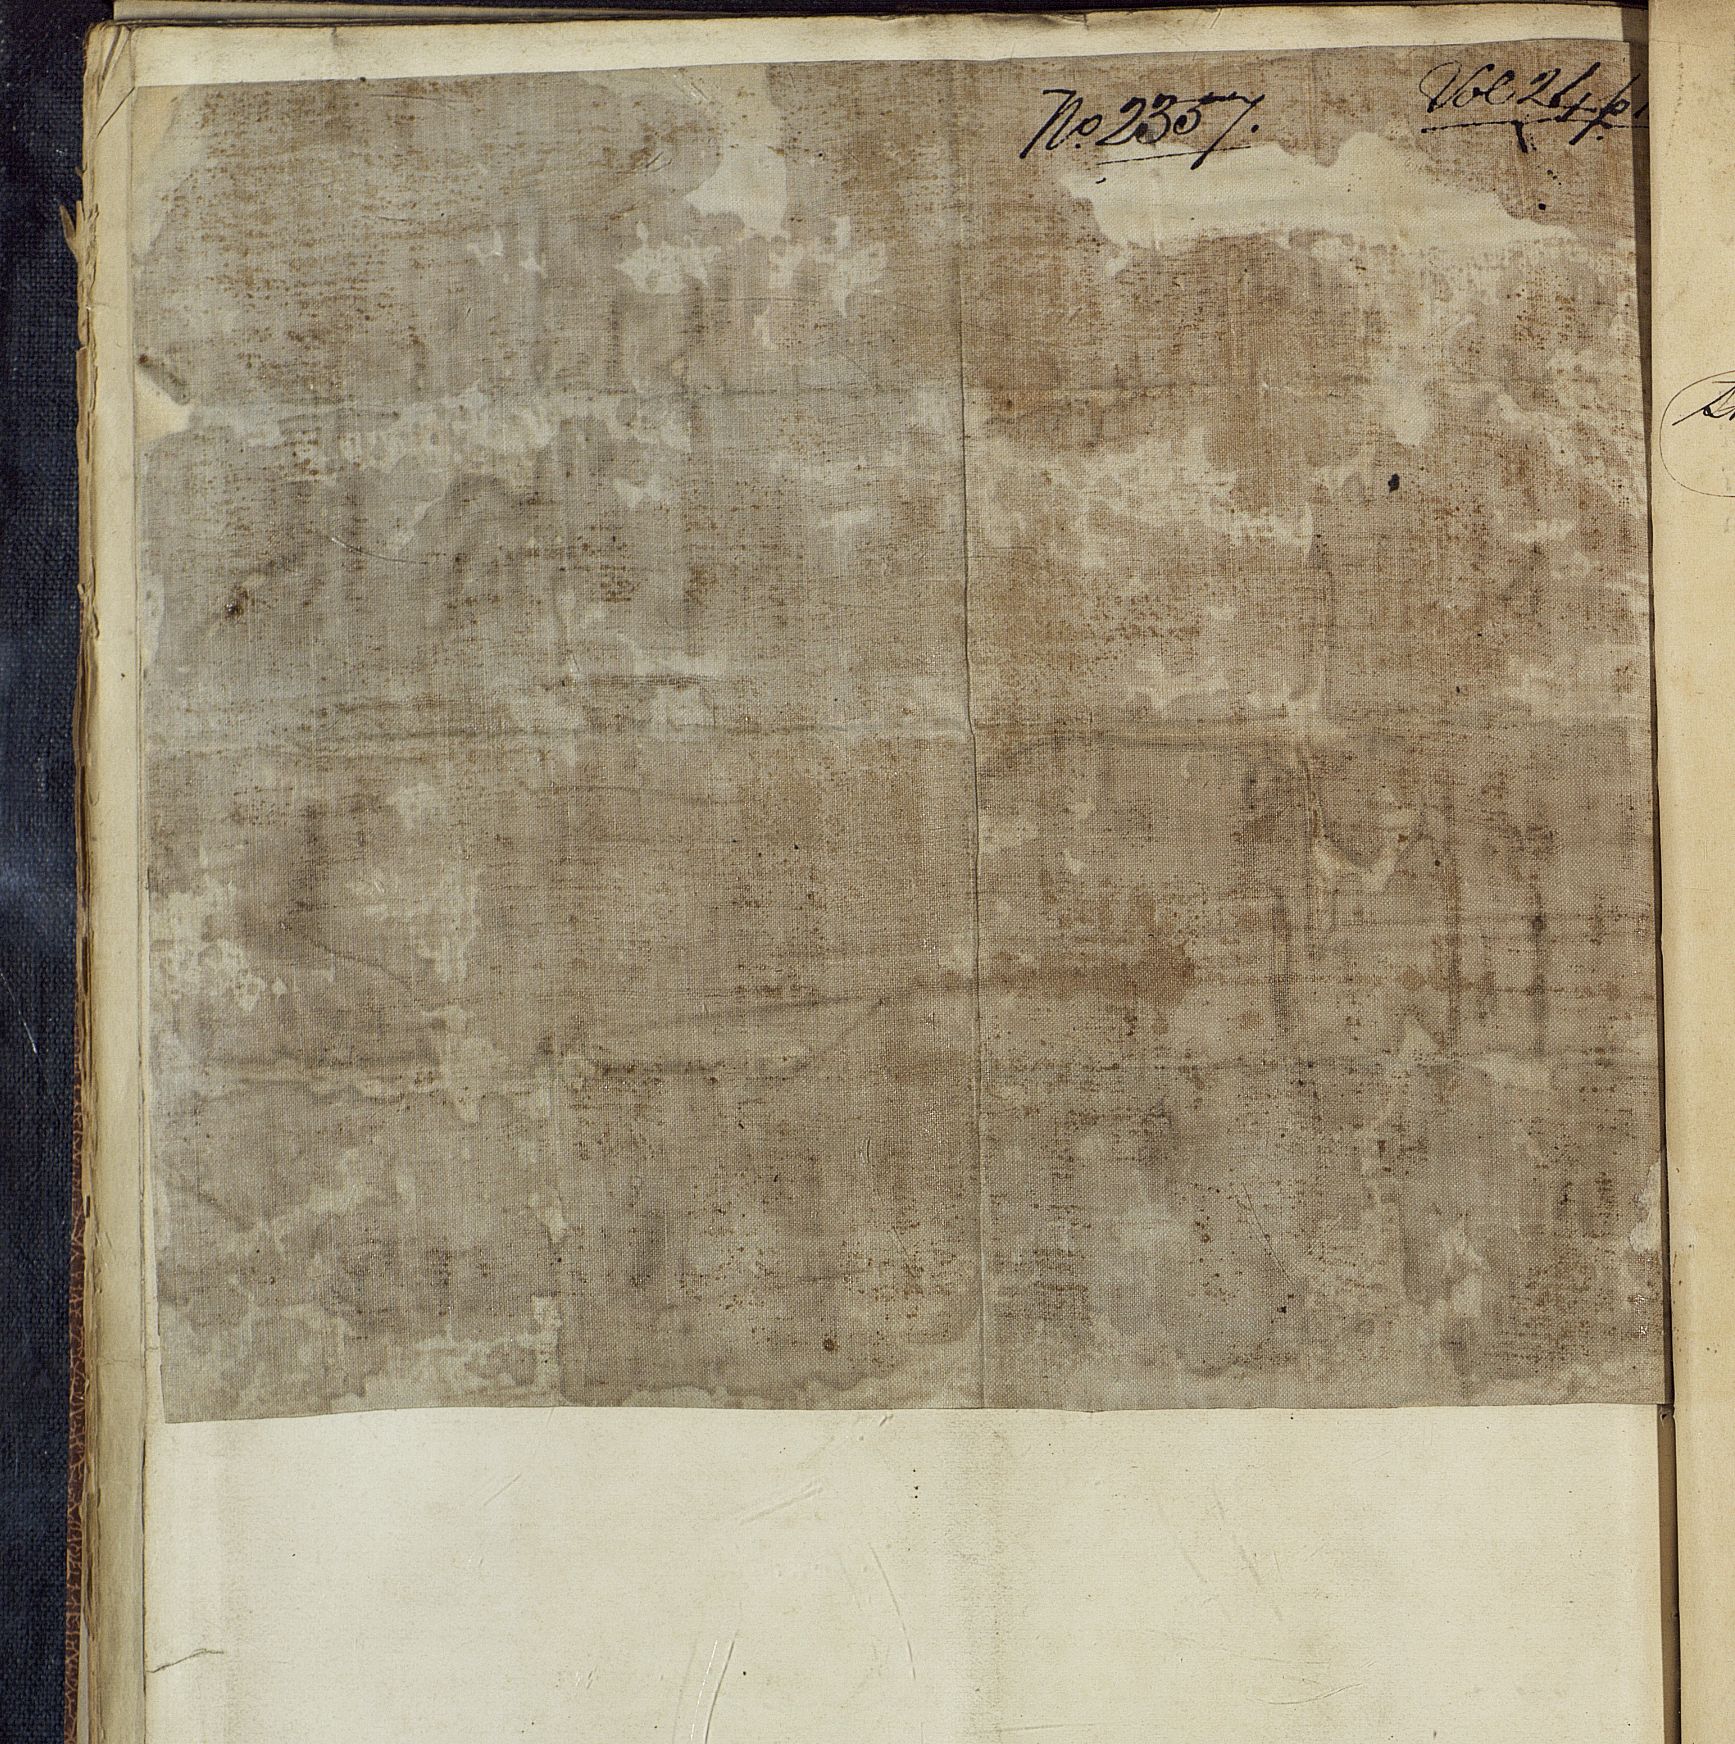 No. 2357.
Vol 24 p. 1